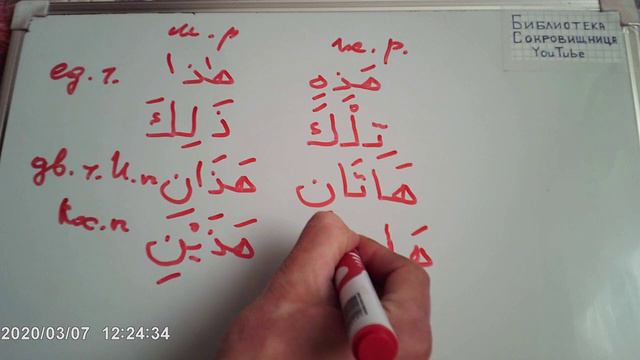 Библиотека
Сокровищница
YouTube
м. р ж. р.
ед. ч. هٰذا هَذِهِ
ذَلِكَ تِلْكَ
дв. ч. И.п هَذَانِ هَاتَانِ
Кос. п هَذَيْنِ هَا
2020/03/07 12:24:34